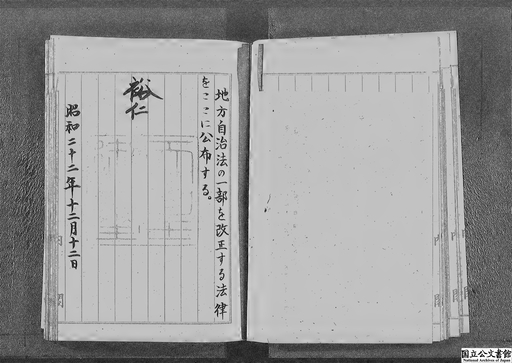 地方自治法の一部を改正する法律
をここに公布する。
裕仁
昭和二十二年十二月十二日
閣
閣
国立公文書館
National Archives of Japan